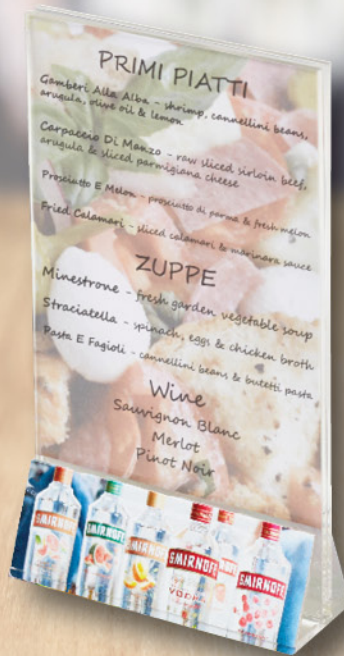 PRIMI PIATTI
Gamberi Alla Alba - shrimp, cannellini beans,
arugula, olive oil & lemon
Carpaccio Di Manzo - raw sliced sirloin beef,
arugula & sliced parmigiana cheese
Prosciutto E Melon - prosciutto di parma & fresh melon
Fried Calamari - sliced calamari & marinara sauce
ZUPPE
Minestrone - fresh garden vegetable soup
Straciatella - spinach, eggs & chicken broth
Pasta E Fagioli - cannellini beans & butetti pasta
Wine
Sauvignon Blanc
Merlot
Pinot Noir
SMIRNOFF
SMIRNOFF
SMIRNOFF
SMIRNOFF
SMIRNOFF
VODKA